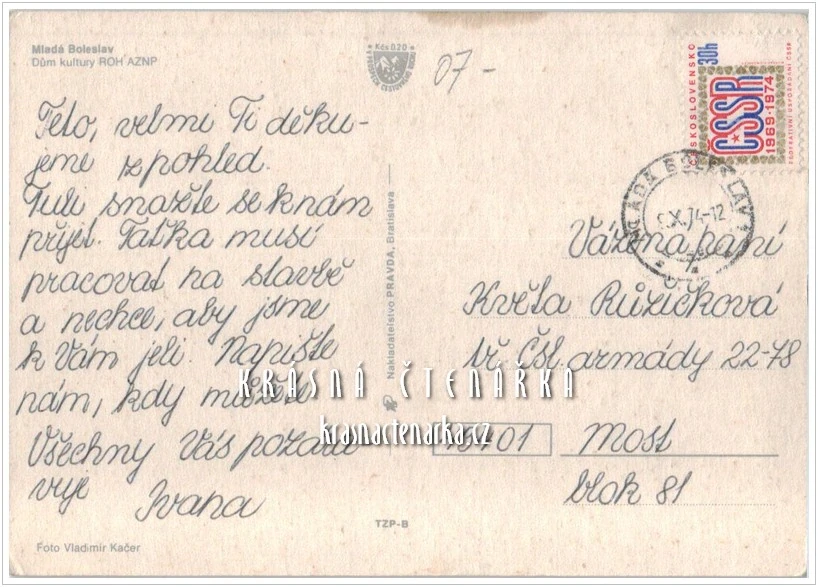 Mladá Boleslav
Dům kultury ROH AZNP
Kčs 0,20
07-
ČESKOSLOVENSKO
30h
ČSSR
1969-1974
FEDERATIVNÍ USPOŘÁDÁNÍ ČSSR
MLADÁ BOLESLAV 1
X.74-12
Teto, velmi Ti děku-
jeme z pohled.
Tuli snažte se k nám
přijet. Taťka musí
pracovat na stavbě
a nechce, aby jsme
k Vám jeli. Napište
nám, kdy můžete
Všechny Vás pozdra
vuje Ivana
Nakladatelství PRAVDA, Bratislava
Vážená paní
Květa Růžičková
tř. Čsl. armády 22-78
KRÁSNÁ ČTENÁŘKA
krasnactenarka.cz
43401 Most
blok 81
TZP-B
Foto Vladimír Kačer